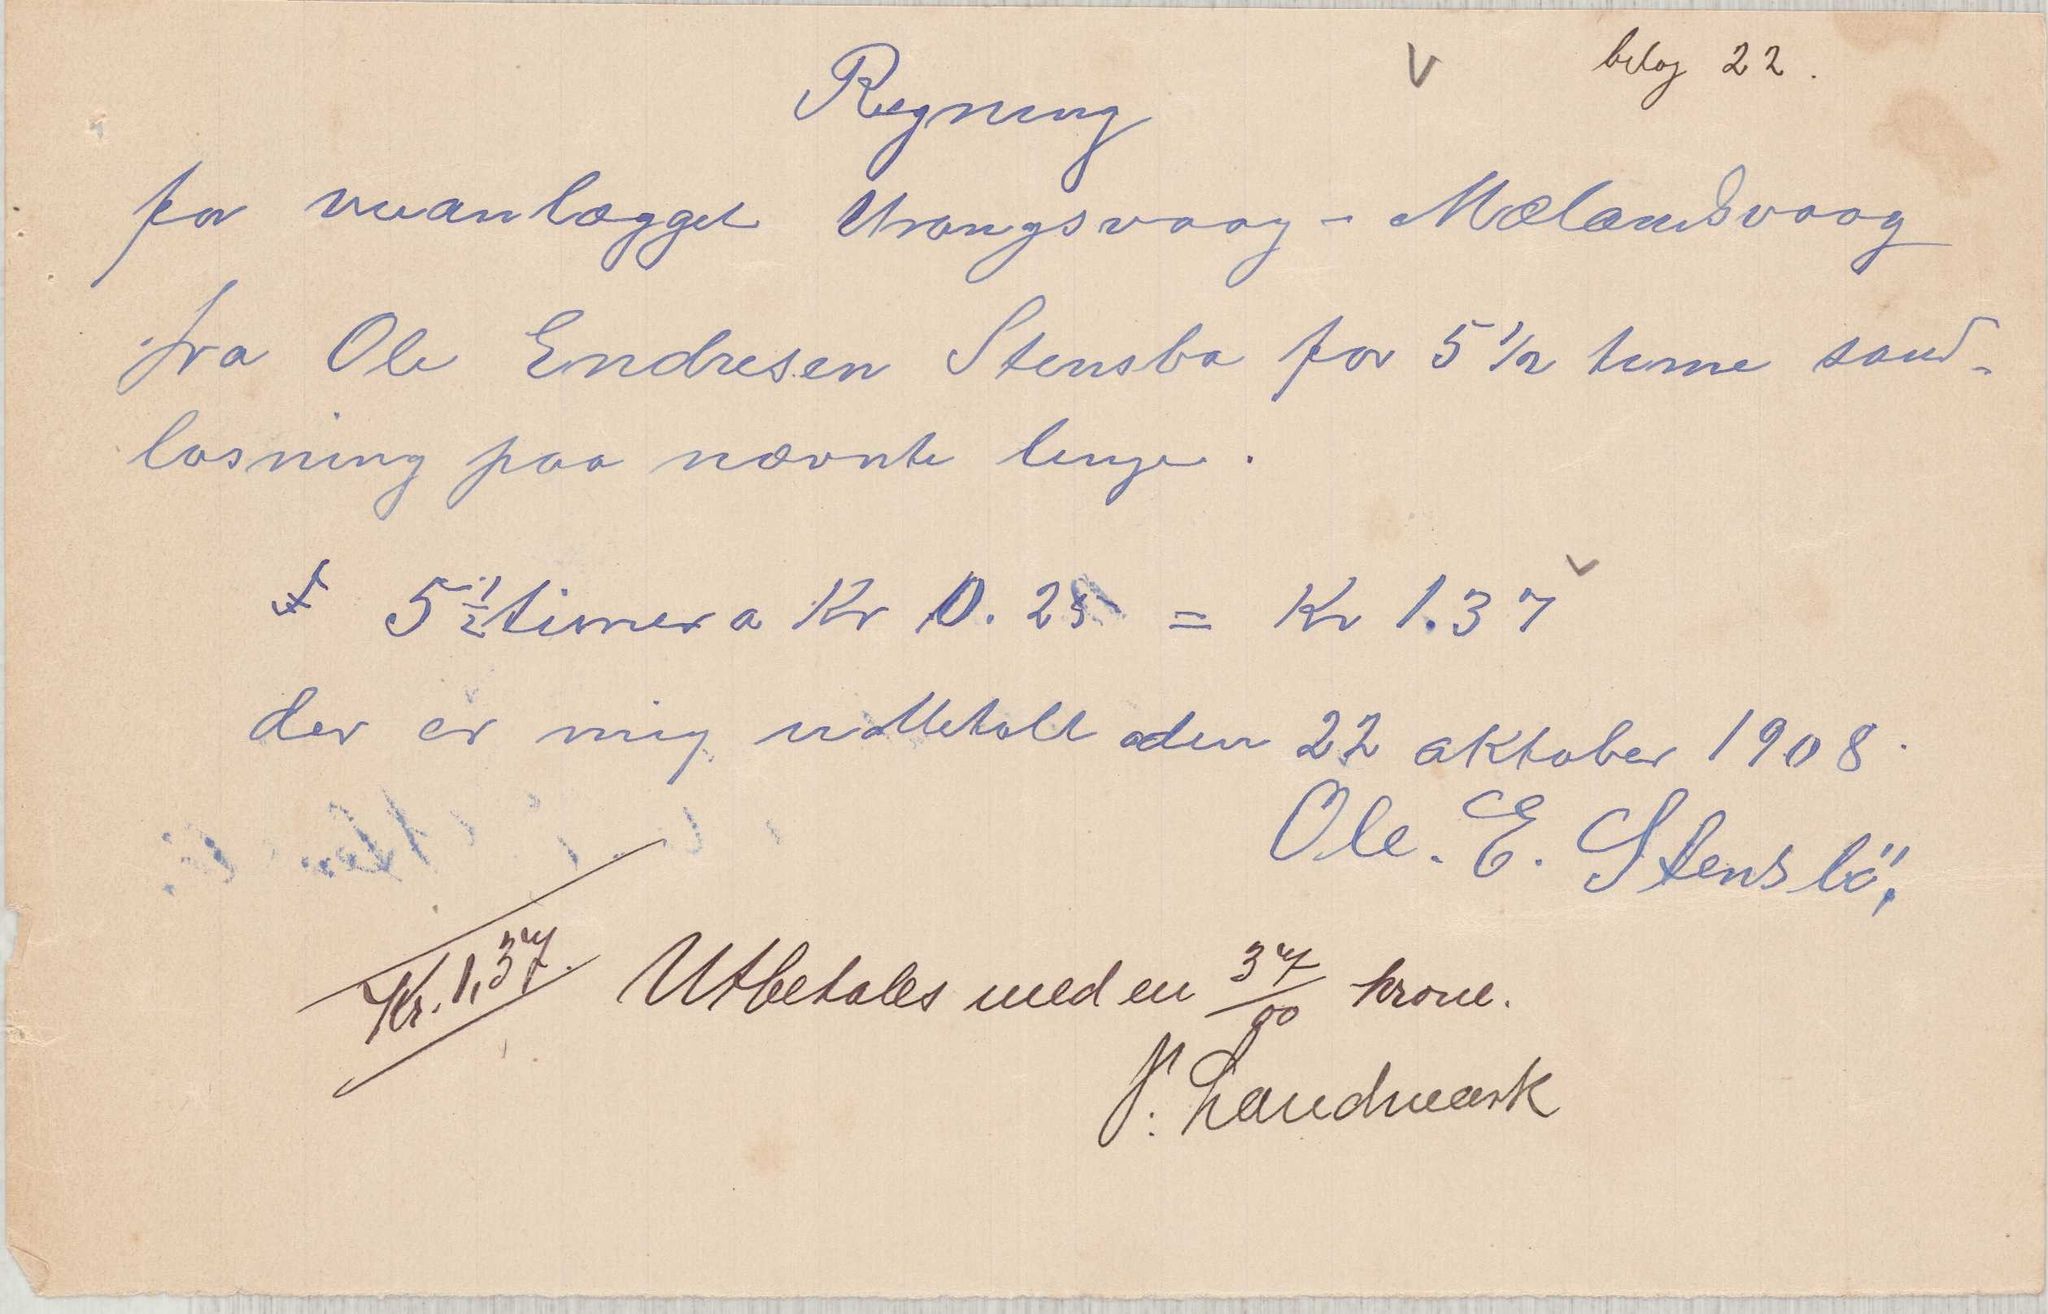 bilag 22.
Regning
for veianlægget Vrangsvaag - Mælandsvaag
fra Ole Endresen Stensbø for 5 1/2 time sand-
losning paa nævnte linje.
5 1/2 timer a Kr 0.25 = Kr 1.37
der er mig udbetalt den 22 oktober 1908.
Ole. E. Stensbö,
Kr. 1,37. Utbetales med en 37/00 krone.
P. Landmark